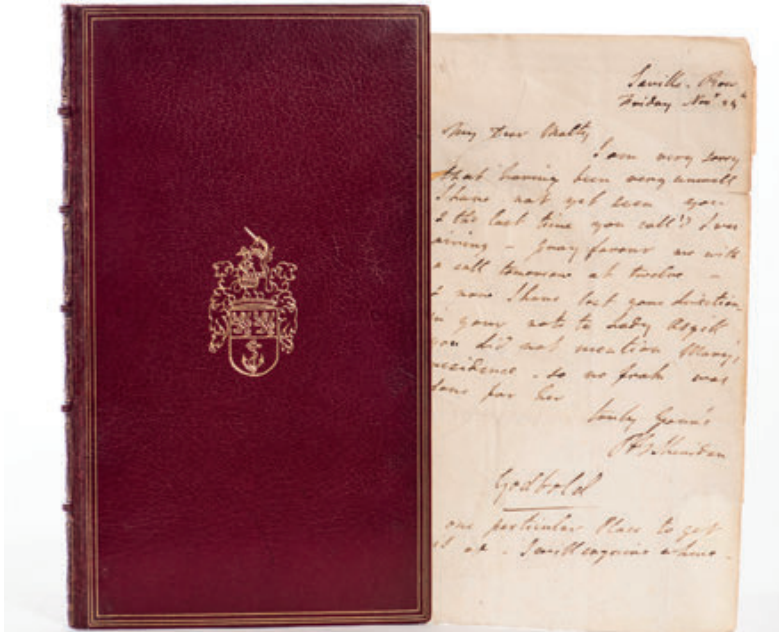 Saville-Row
Friday Novr 24th
My Dear Matty
I am very sorry
that having been very unwell
I have not yet seen you
& the last time you call'd I was
airing - pray favour me with
a call tomorrow at twelve -
& now I have lost your direction
in your note to Lady Asgill
you did not mention Mary's
residence - so no frank was
done for her
truly Yours
RBSheridan
Godbold
one particular Place to get
it at - I will enquire where -